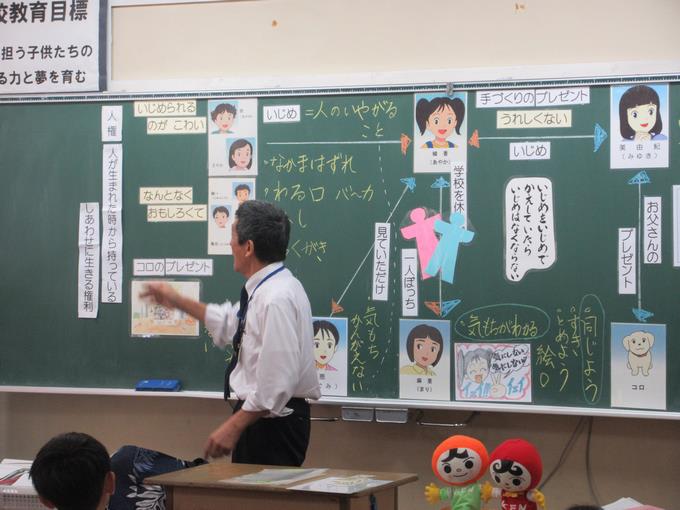 校教育目標
担う子供たちの
る力と夢を育む
人権
人が生まれた時から持っている
しあわせに生きる権利
いじめられる
のが こわい
なんとなく
おもしろくて
コロのプレゼント
いじめ
=人のいやがる
こと
なかまはずれ
わる口 バーカ
し
くがき
綾香
(あやか)
手づくりのプレゼント
うれしくない
いじめ
美由紀
(みゆき)
学校を休
いじめをいじめで
かえしていたら
いじめはなくならない
お父さんの
プレゼント
見ていただけ
一人ぼっち
気もち
かんがえない
(まり)
気もちがわかる
気にしない
イェイ
同じよう
コロ